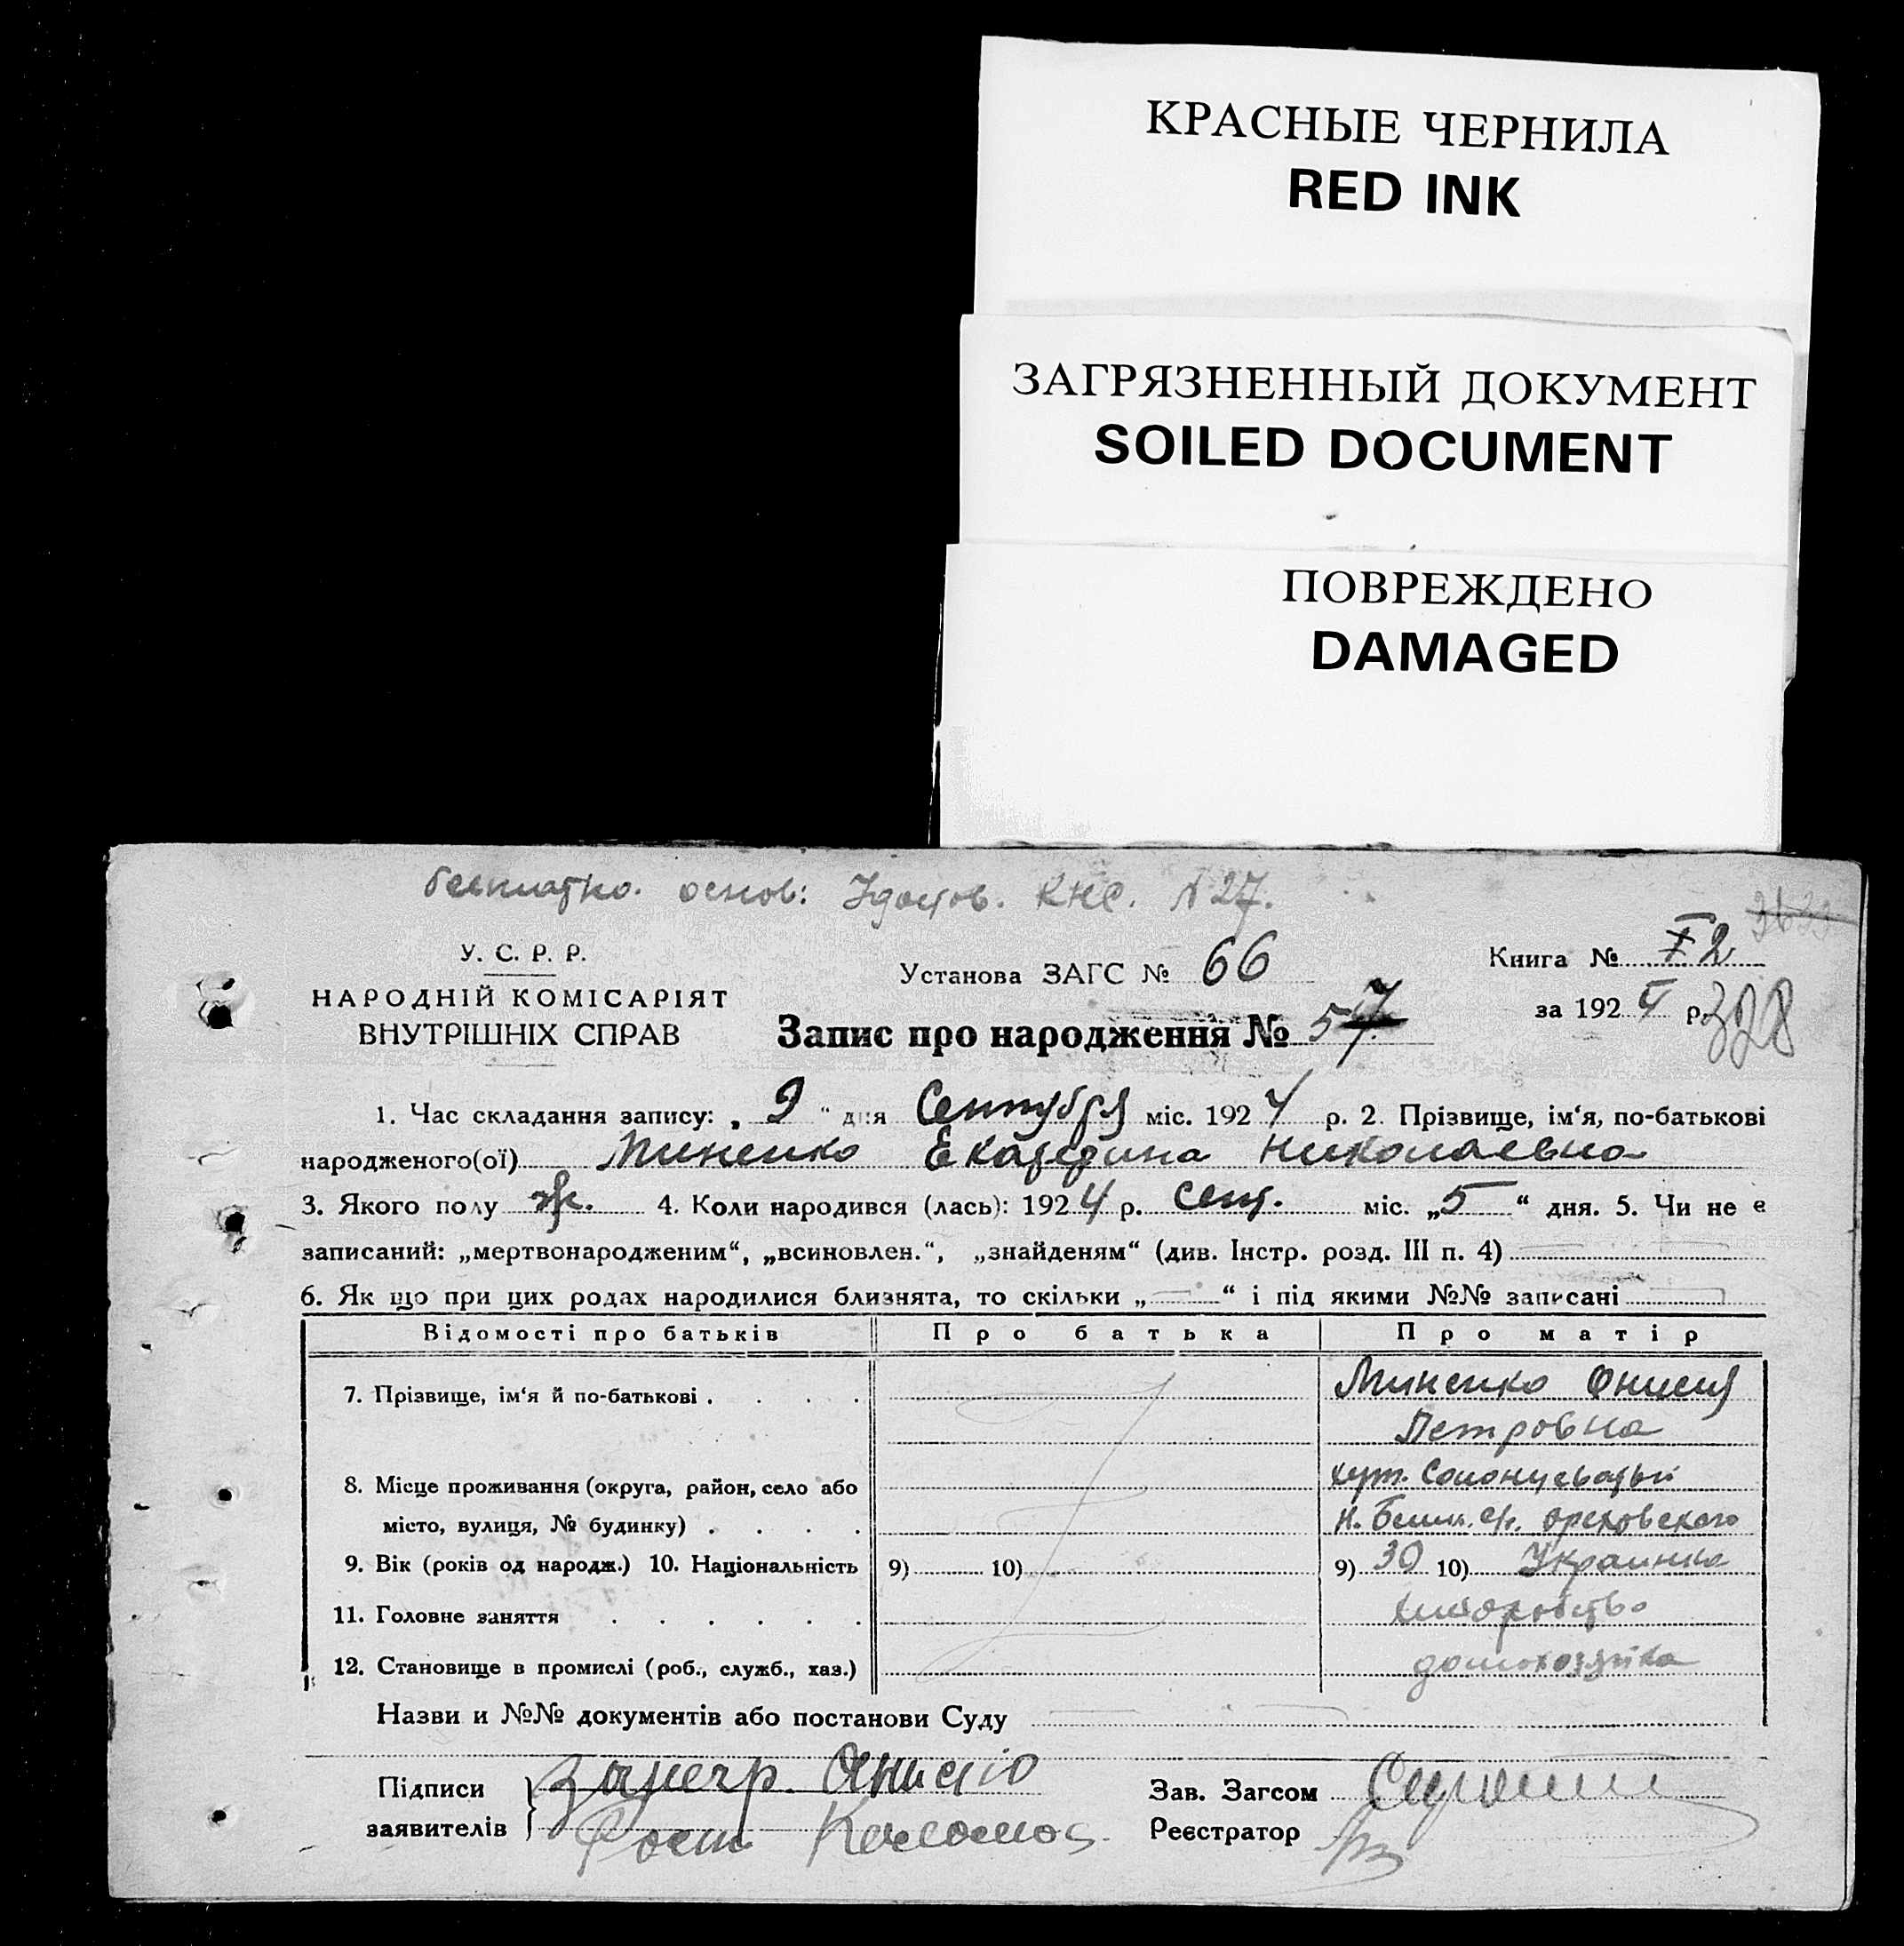 КРАСНЫЕ ЧЕРНИЛА
RED INK
ЗАГРЯЗНЕННЫЙ ДОКУМЕНТ
SOILED DOCUMENT
ПОВРЕЖДЕНО
DAMAGED
бесплатно. основ: Удостов. КНС. №27.
У. С. Р. Р.
НАРОДНІЙ КОМІСАРІЯТ
ВНУТРІШНІХ СПРАВ
Установа ЗАГС № 66
Запис про народження № 57
Книга № 2
за 192 р. 328
1. Час складання запису: „ 9 " дня Сентября міс. 1924 р. 2. Прізвище, ім‘я, по-батькові
народженого(ої) Миненко Екатерина Николаевна
3. Якого полу ж. 4. Коли народився (лась): 1924 р. Сент. міс. „5“ дня. 5. Чи не є
записаний: „мертвонародженим“, „всиновлен.“, „знайденям“ (див. Інстр. розд. III п. 4)
6. Як що при цих родах народилися близнята, то скільки „ — “ і під якими №№ записані
Відомості про батьків Про батька Про матір
7. Прізвище, ім‘я й по-батькові . . . . Миненко Онисия
Петровна
8. Місце проживання (округа, район, село або хут. Солонцеватый
місто, вулиця, № будинку) . . . . Ореховского
9. Вік (років од народж.) 10. Національність 9) 10) 9) 30 10) Украинка
11. Головне заняття . . . . . . хліборобство
12. Становище в промислі (роб., служб., хаз.) домохозяйка
Назви и №№ документів або постанови Суду
Підписи
заявителів
Зав. Загсом
Реєстратор